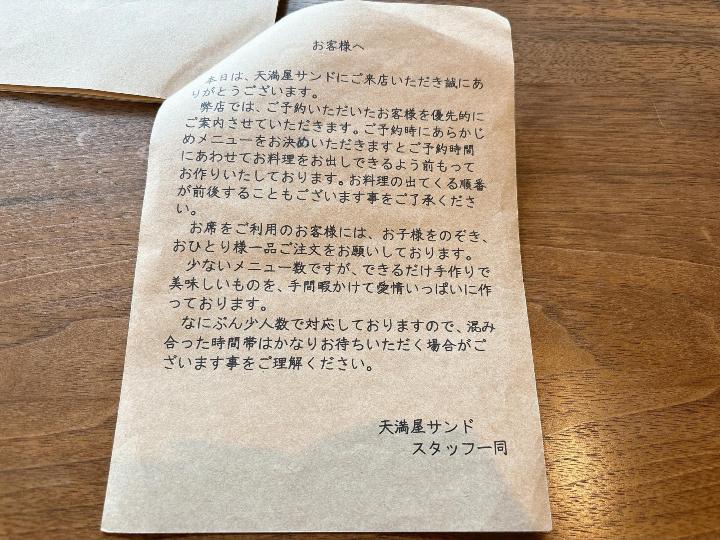 お客様へ
本日は、天満屋サンドにご来店いただき誠にあ
りがとうございます。
弊店では、ご予約いただいたお客様を優先的に
ご案内させていただきます。ご予約時にあらかじ
めメニューをお決めいただきますとご予約時間
にあわせてお料理をお出しできるよう前もって
お作りいたしております。お料理の出てくる順番
が前後することもございます事をご了承くださ
い。
お席をご利用のお客様には、お子様をのぞき、
おひとり様一品ご注文をお願いしております。
少ないメニュー数ですが、できるだけ手作りで
美味しいものを、手間暇かけて愛情いっぱいに作
っております。
なにぶん少人数で対応しておりますので、混み
合った時間帯はかなりお待ちいただく場合がご
ざいます事をご理解ください。
天満屋サンド
スタッフ一同